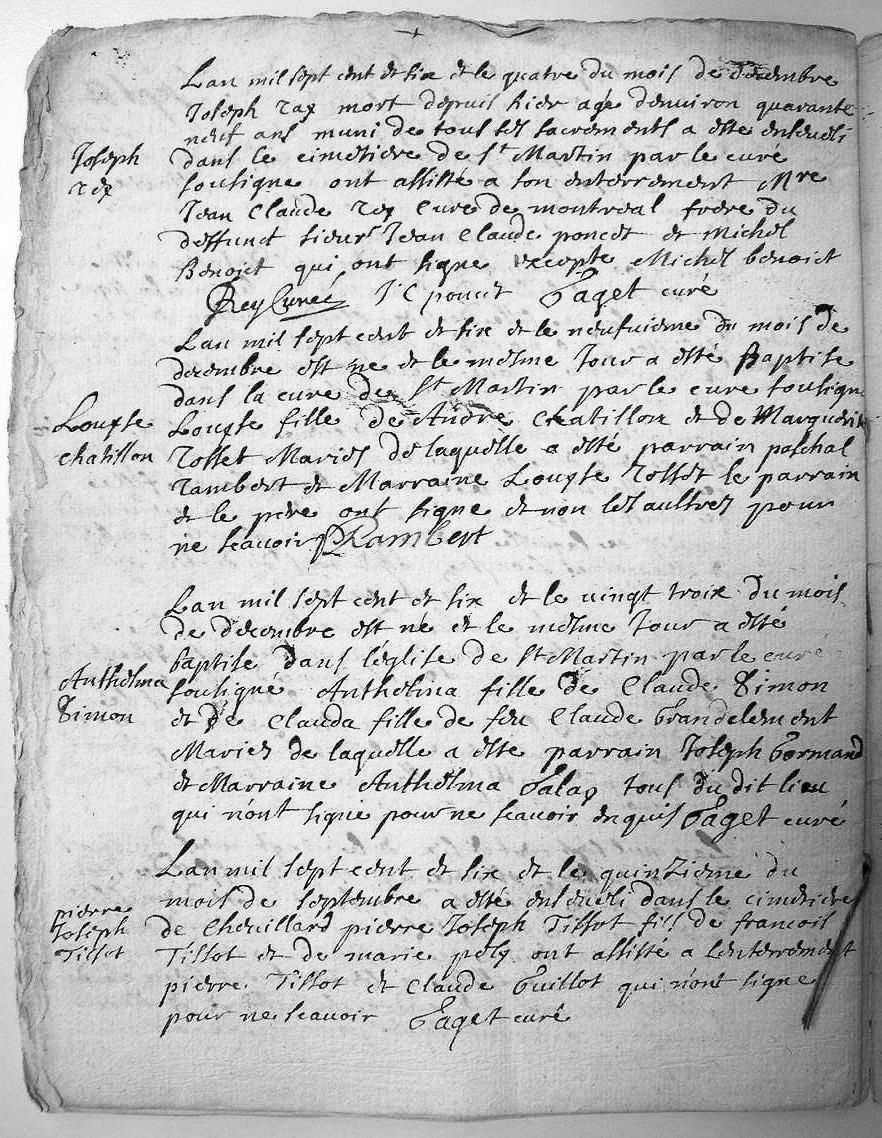 Lan mil sept cent et six et le quatre du mois de decembre
Joseph rey mort depuis hier agé denviron quarante
neuf ans muni de tous ses sacrements a esté enseueli
Joseph
rey
dans le cimetiere de st Martin par le curé
sousigne ont assisté a son enterrement Mre
Jean Claude rey Curé de montreal frere du
deffunct sieurs Jean Claude poncet et Michel
Benoict qui ont signe excepte Michel benoict
Rey Curé J C poncet Paget curé
Lan mil sept cent et six et le neufuieme du mois de
decembre est ne et le mesme Jour a esté Baptise
dans la cure de St Martin par le cure sousigne
Louyse
chatillon
Louyse fille de Andre Chatillon et de Marguerite
Josset Mariés de laquelle a esté parrain paschal
rambert et Marraine Louyse Josset le parrain
et le pere ont signe et non les aultres pour
ne scauoir PRambert
Lan mil sept cent et six et le uingt troix du mois
de decembre est né et le mesme Jour a esté
baptise dans leglise de St Martin par le curé
Anthelma
Simon
sousigné Anthelma fille de Claude Simon
et de Clauda fille de feu Claude Grandclement
Mariés de laquelle a esté parrain Joseph Gormand
et Marraine Anthelma tous du dit lieu
qui n'ont signe pour ne scauoir enquis Paget curé
Lan mil sept cent et six et le quinzieme du
mois de septembre a esté enseueli dans le cimetiere
pierre
Joseph
Tissot
de Cheuillard pierre Joseph Tissot fils de francois
Tissot et de marie poly ont assisté a lenterrement
pierre Tissot et Claude Guillot qui n'ont signe
pour ne scauoir Paget curé